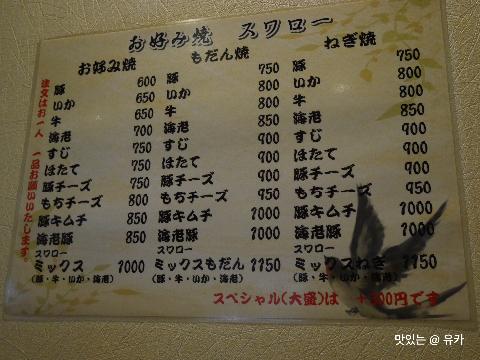 お好み焼 スワロー
注文はお一人 一品お願いいたします。
お好み焼
豚 600
いか 650
牛 650
海老 700
すじ 750
ほたて 750
豚チーズ 750
もちチーズ 800
豚キムチ 850
海老豚 850
スワロー
ミックス 1000
(豚・牛・いか・海老)
もだん焼
豚 750
いか 800
牛 800
海老 900
すじ 900
ほたて 900
豚チーズ 900
もちチーズ 950
豚キムチ 1000
海老豚 1000
スワロー
ミックスもだん 1150
(豚・牛・いか・海老)
ねぎ焼
豚 750
いか 800
牛 800
海老 900
すじ 900
ほたて 900
豚チーズ 900
もちチーズ 950
豚キムチ 1000
海老豚 1000
スワロー
ミックスねぎ 1150
(豚・牛・いか・海老)
スペシャル(大盛)は +200円です
맛있는 @ 유카